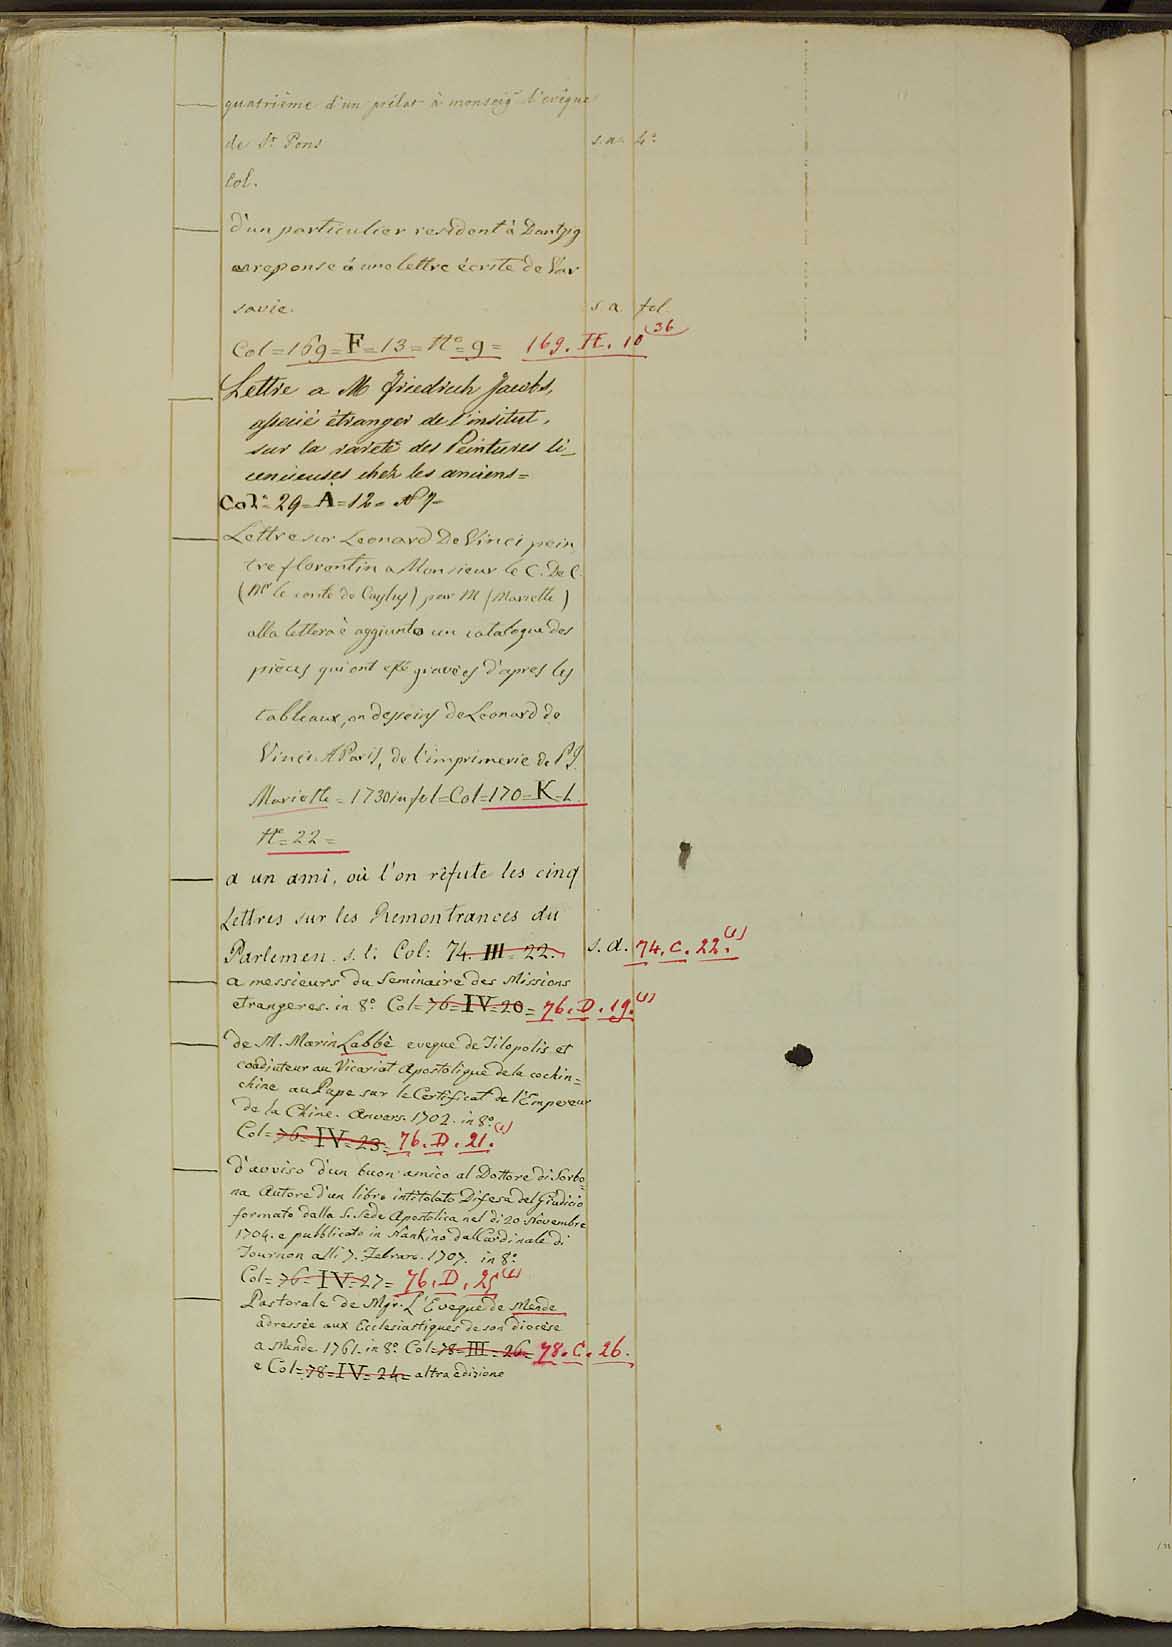 — quatrième d'un prélat à monseigr l'evêque
de St Pons s.a. 4o
Col.
— d'un particulier resident à Dantzig
en reponse à une lettre écrite de Var
savie. s.a. fol.
Col=169=F=13=No=9= 169. H. 10 (36
— Lettre a M Friedrich Jacobs,
associé étranger de l'insitut,
sur la rareté des Peintures li_
cencieuses chez les anciens=
Col:=29=A=12= No 7=
— Lettre sur Leonard De Vinci pein
tre florentin a Monsieur le C. De C.
(Mr le conte de Caylus) par M (Mariette)
alla lettera è aggiunto un catalogue des
pièces qui ont esté gravées d'apres les
tableaux, ou desseins de Leonard de
Vinci. A Paris, de l'imprimerie de P J.
Mariette = 1730 in fol=Col=170=K=1.
No=22=
— a un ami, où l'on réfute les cinq
Lettres sur les Remontrances du
Parlemen. s. l. Col: 74. III=22. s. a. 74. C. 22.(1)
— a messieurs du Seminaire des Missions
etrangeres. in 8o Col=76=IV=20= 76. D. 19.(1)
— de M. Marin Labbè eveque de Tilopolis et
coadjuteur au Vicariat Apostolique de la cochin=
chine au Pape sur le Certificat de l'Empereur
de la Chine. Anvers. 1702. in 8o
Col=76=IV=23= 76. D. 21.(1)
— d'avviso d'un buon amico al Dottore di Sorbo=
na Autore d'un libro intitolato Difesa del Giudicio
formato dalla S. Sede Apostolica nel di 20 Novembre
1704. e pubblicato in Nankino dal Cardinale di
Tournon alli 7. Febraro. 1707. in 8o
Col=76=IV=27= 76. D. 25(1)
— Pastorale de Mgr. L'Eveque de Mende
adressée aux Ecclesiastiques de son diocèse
a Mende 1761. in 8o Col=78=III=26= 78. C. 26.
e Col=78=IV=24= altra edizione